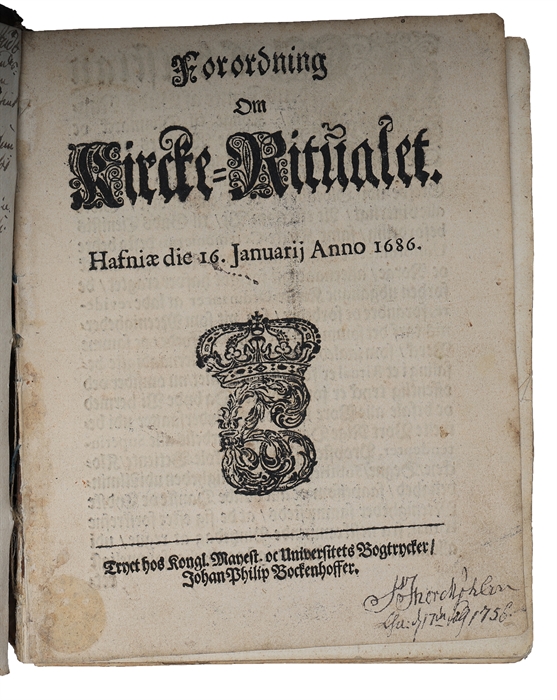 Forordning
Om
Kircke=Ritŭalet.
Hafniæ die 16. Januarij Anno 1686.
Tryct hos Kongl. Mayest. oc Universitets Bogtrycker/
Johan Philip Bockenhoffer.
1756.